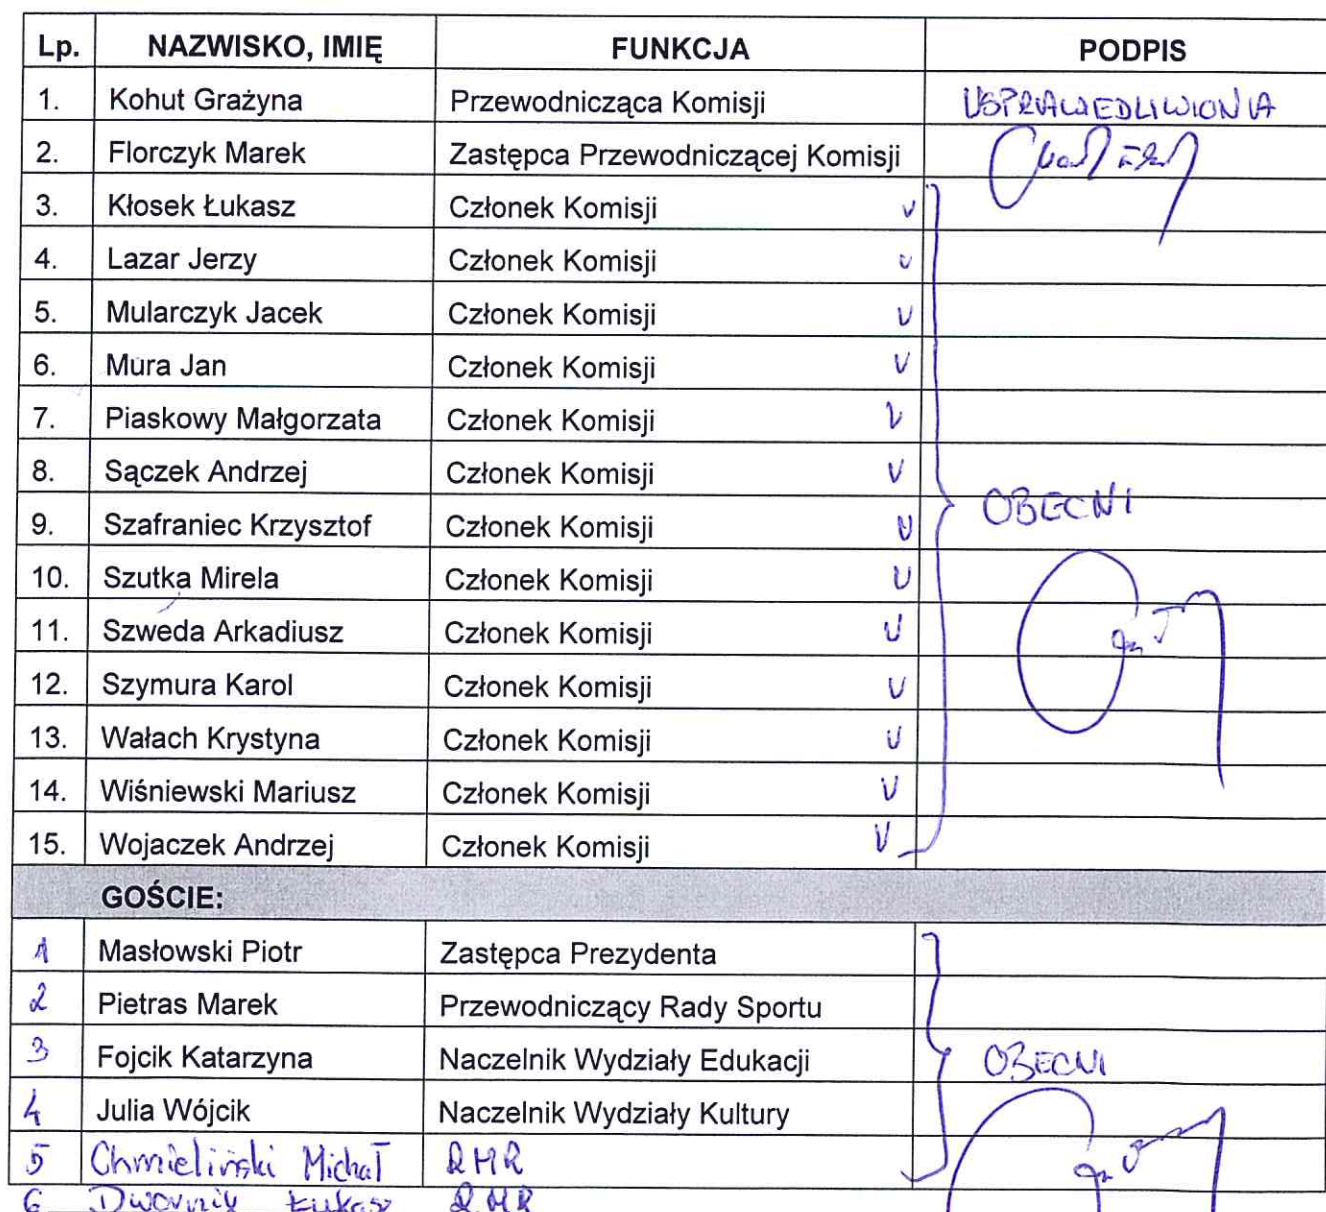 Lp. NAZWISKO, IMIĘ FUNKCJA PODPIS
1. Kohut Grażyna Przewodnicząca Komisji USPRAWIEDLIWIONA
2. Florczyk Marek Zastępca Przewodniczącej Komisji
3. Kłosek Łukasz Członek Komisji v
4. Lazar Jerzy Członek Komisji v
5. Mularczyk Jacek Członek Komisji v
6. Mura Jan Członek Komisji v
7. Piaskowy Małgorzata Członek Komisji v
8. Sączek Andrzej Członek Komisji v
9. Szafraniec Krzysztof Członek Komisji v OBECNI
10. Szutka Mirela Członek Komisji v
11. Szweda Arkadiusz Członek Komisji v
12. Szymura Karol Członek Komisji v
13. Wałach Krystyna Członek Komisji v
14. Wiśniewski Mariusz Członek Komisji v
15. Wojaczek Andrzej Członek Komisji v
GOŚCIE:
1 Masłowski Piotr Zastępca Prezydenta
2 Pietras Marek Przewodniczący Rady Sportu
3 Fojcik Katarzyna Naczelnik Wydziały Edukacji OBECNI
4 Julia Wójcik Naczelnik Wydziały Kultury
5 Chmieliński Michał RMR
6 Dwornik Łukasz RMR